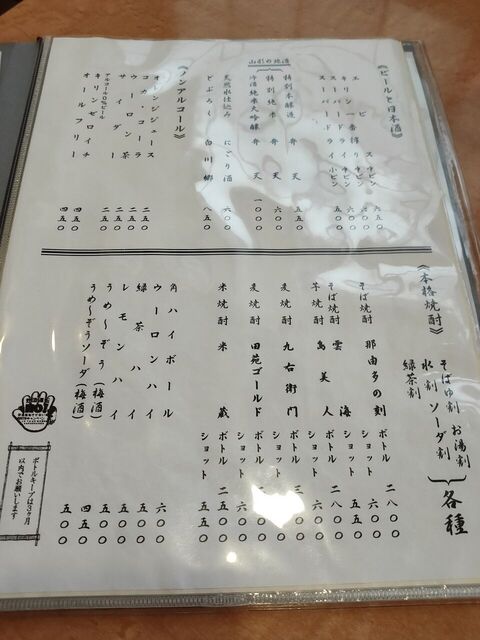 《ビールと日本酒》
エビス中ビン 六五〇
キリン一番搾り中ビン 六〇〇
スーパードライ中ビン 六〇〇
スーパードライ小ビン
山形の地酒
特別本醸造 弁天 五五〇
特別純米 弁天 六〇〇
冷酒純米大吟醸 弁天 一〇〇〇
天然水仕込み にごり酒 六〇〇
どぶろく 白川郷 八五〇
《ノンアルコール》
オレンジジュース 二五〇
コカ・コーラ 二五〇
ウーロン茶 二五〇
サイダー 二五〇
アルコール0%ビール
キリンゼロイチ 四五〇
オールフリー 四五〇
《本格焼酎》
そばゆ割 お湯割
水割 ソーダ割
緑茶割
各種
そば焼酎 那由多の刻 ボトル 二八〇〇
ショット 六〇〇
そば焼酎 雲海 ボトル
ショット 五五〇
芋焼酎 島美人 ボトル 二八〇〇
ショット 六〇〇
麦焼酎 九右衛門 ボトル
ショット 六〇〇
麦焼酎 田苑ゴールド ボトル
ショット 六〇〇
米焼酎 米蔵 ボトル 二五〇〇
ショット 五五〇
角ハイボール 六〇〇
ウーロンハイ 五〇〇
緑茶ハイ 五〇〇
レモンハイ 五〇〇
うめ〜ぞう(梅酒) 四五〇
うめ〜ぞうソーダ(梅酒) 五〇〇
NO!
ボトルキープは3ヶ月
以内でお願いします